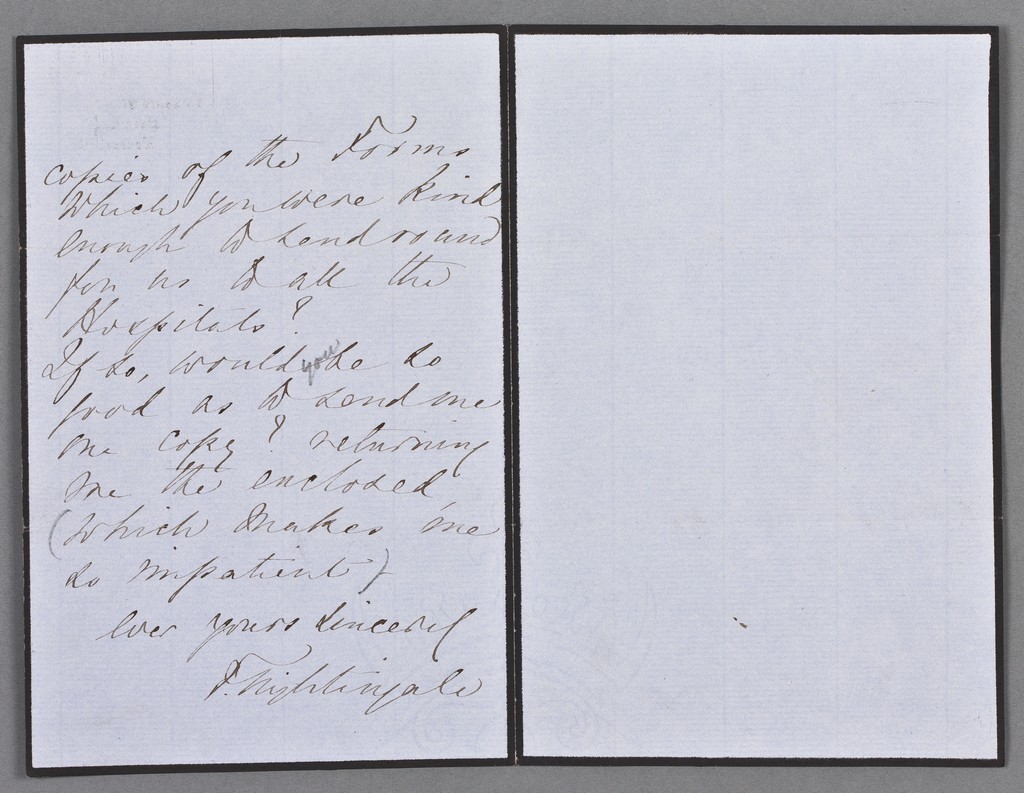 copies of the Forms
which you were kind
enough to send round
for us to all the
Hospitals?
If so, would you be so
good as to send me
one copy? returning
me the enclosed,
(which makes me
so impatient)
Ever yours sincerely
F. Nightingale